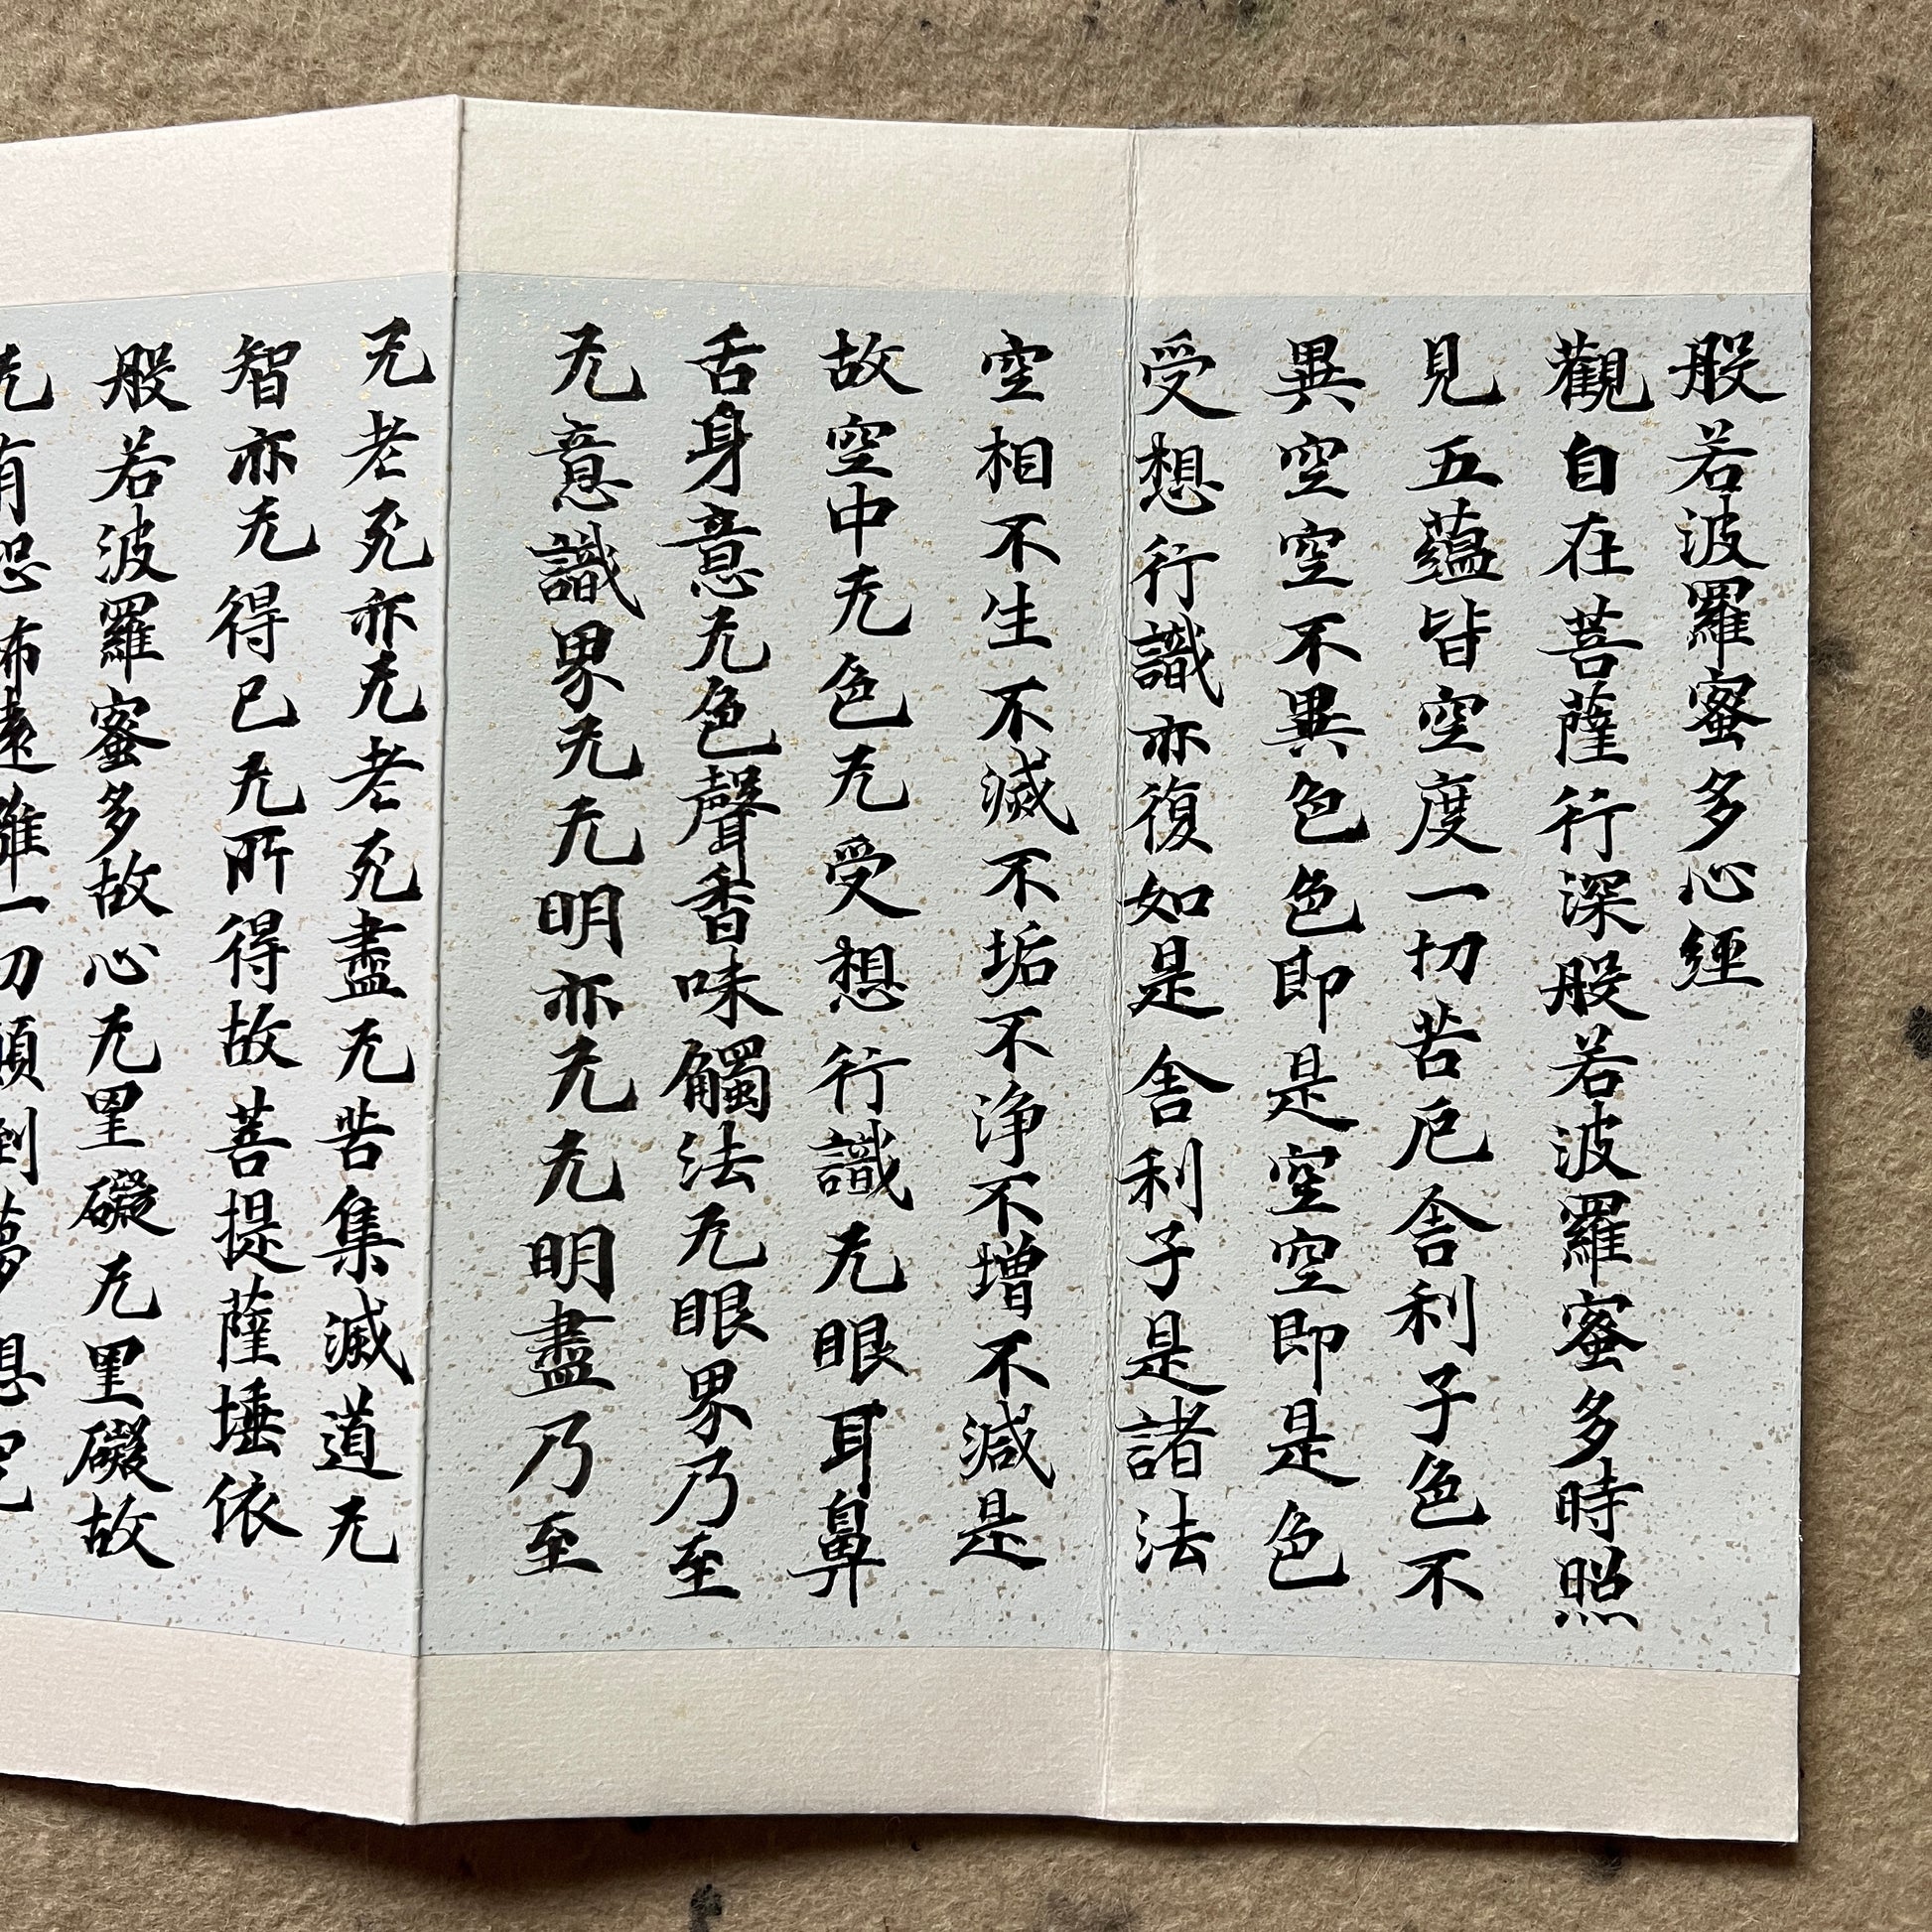 般若波羅蜜多心經
觀自在菩薩行深般若波羅蜜多時照
見五蘊皆空度一切苦厄舍利子色不
異空空不異色色即是空空即是色
受想行識亦復如是舍利子是諸法
空相不生不滅不垢不浄不增不減是
故空中无色无受想行識无眼耳鼻
舌身意无色聲香味觸法无眼界乃至
无意識界无无明亦无无明盡乃至
无老死亦无老死盡无苦集滅道无
智亦无得已无所得故菩提薩埵依
般若波羅蜜多故心无罣礙无罣礙故
无有恐怖遠離一切顛倒夢想究